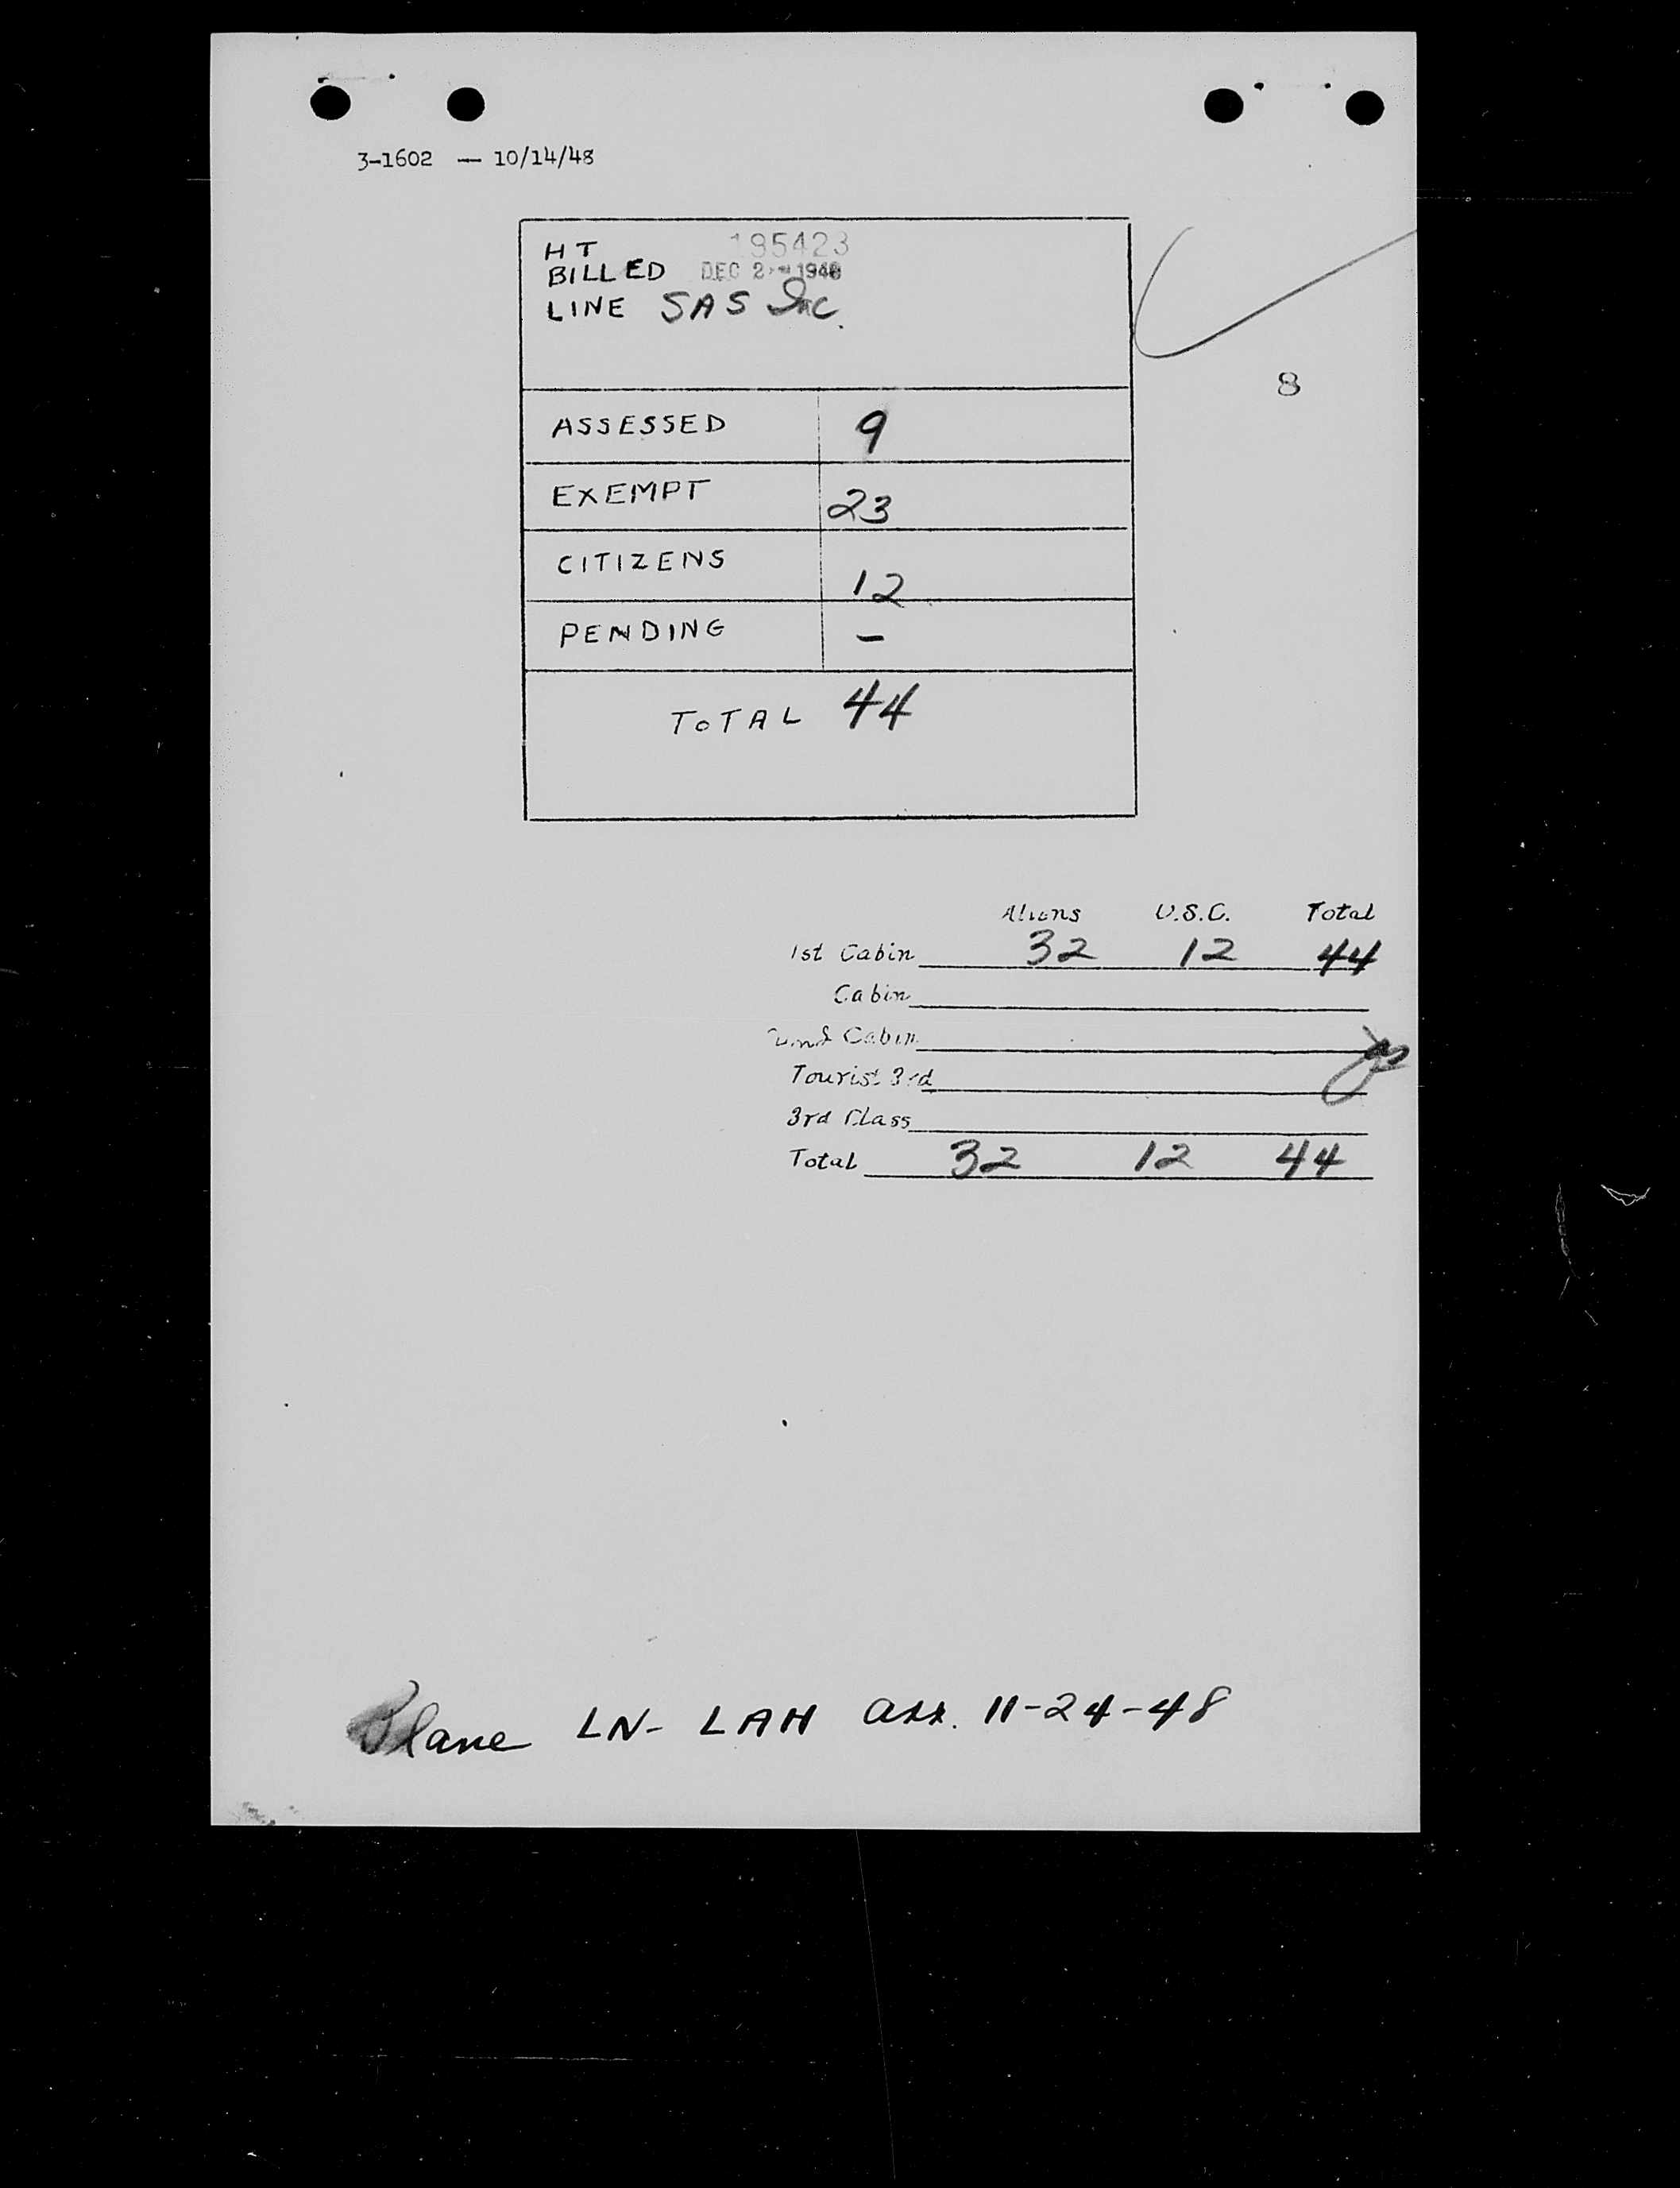 3-1602 — 10/14/48
HT 195423
BILLED DEC 2 1948
LINE SAS Inc.
8
ASSESSED 9
EXEMPT 23
CITIZENS 12
PENDING –
TOTAL 44
Aliens U.S.C. Total
1st Cabin 32 12 44
Cabin
Cabin
Tourist 3rd
3rd Class
Total 32 12 44
Plane LN- LAH arr. 11-24-48